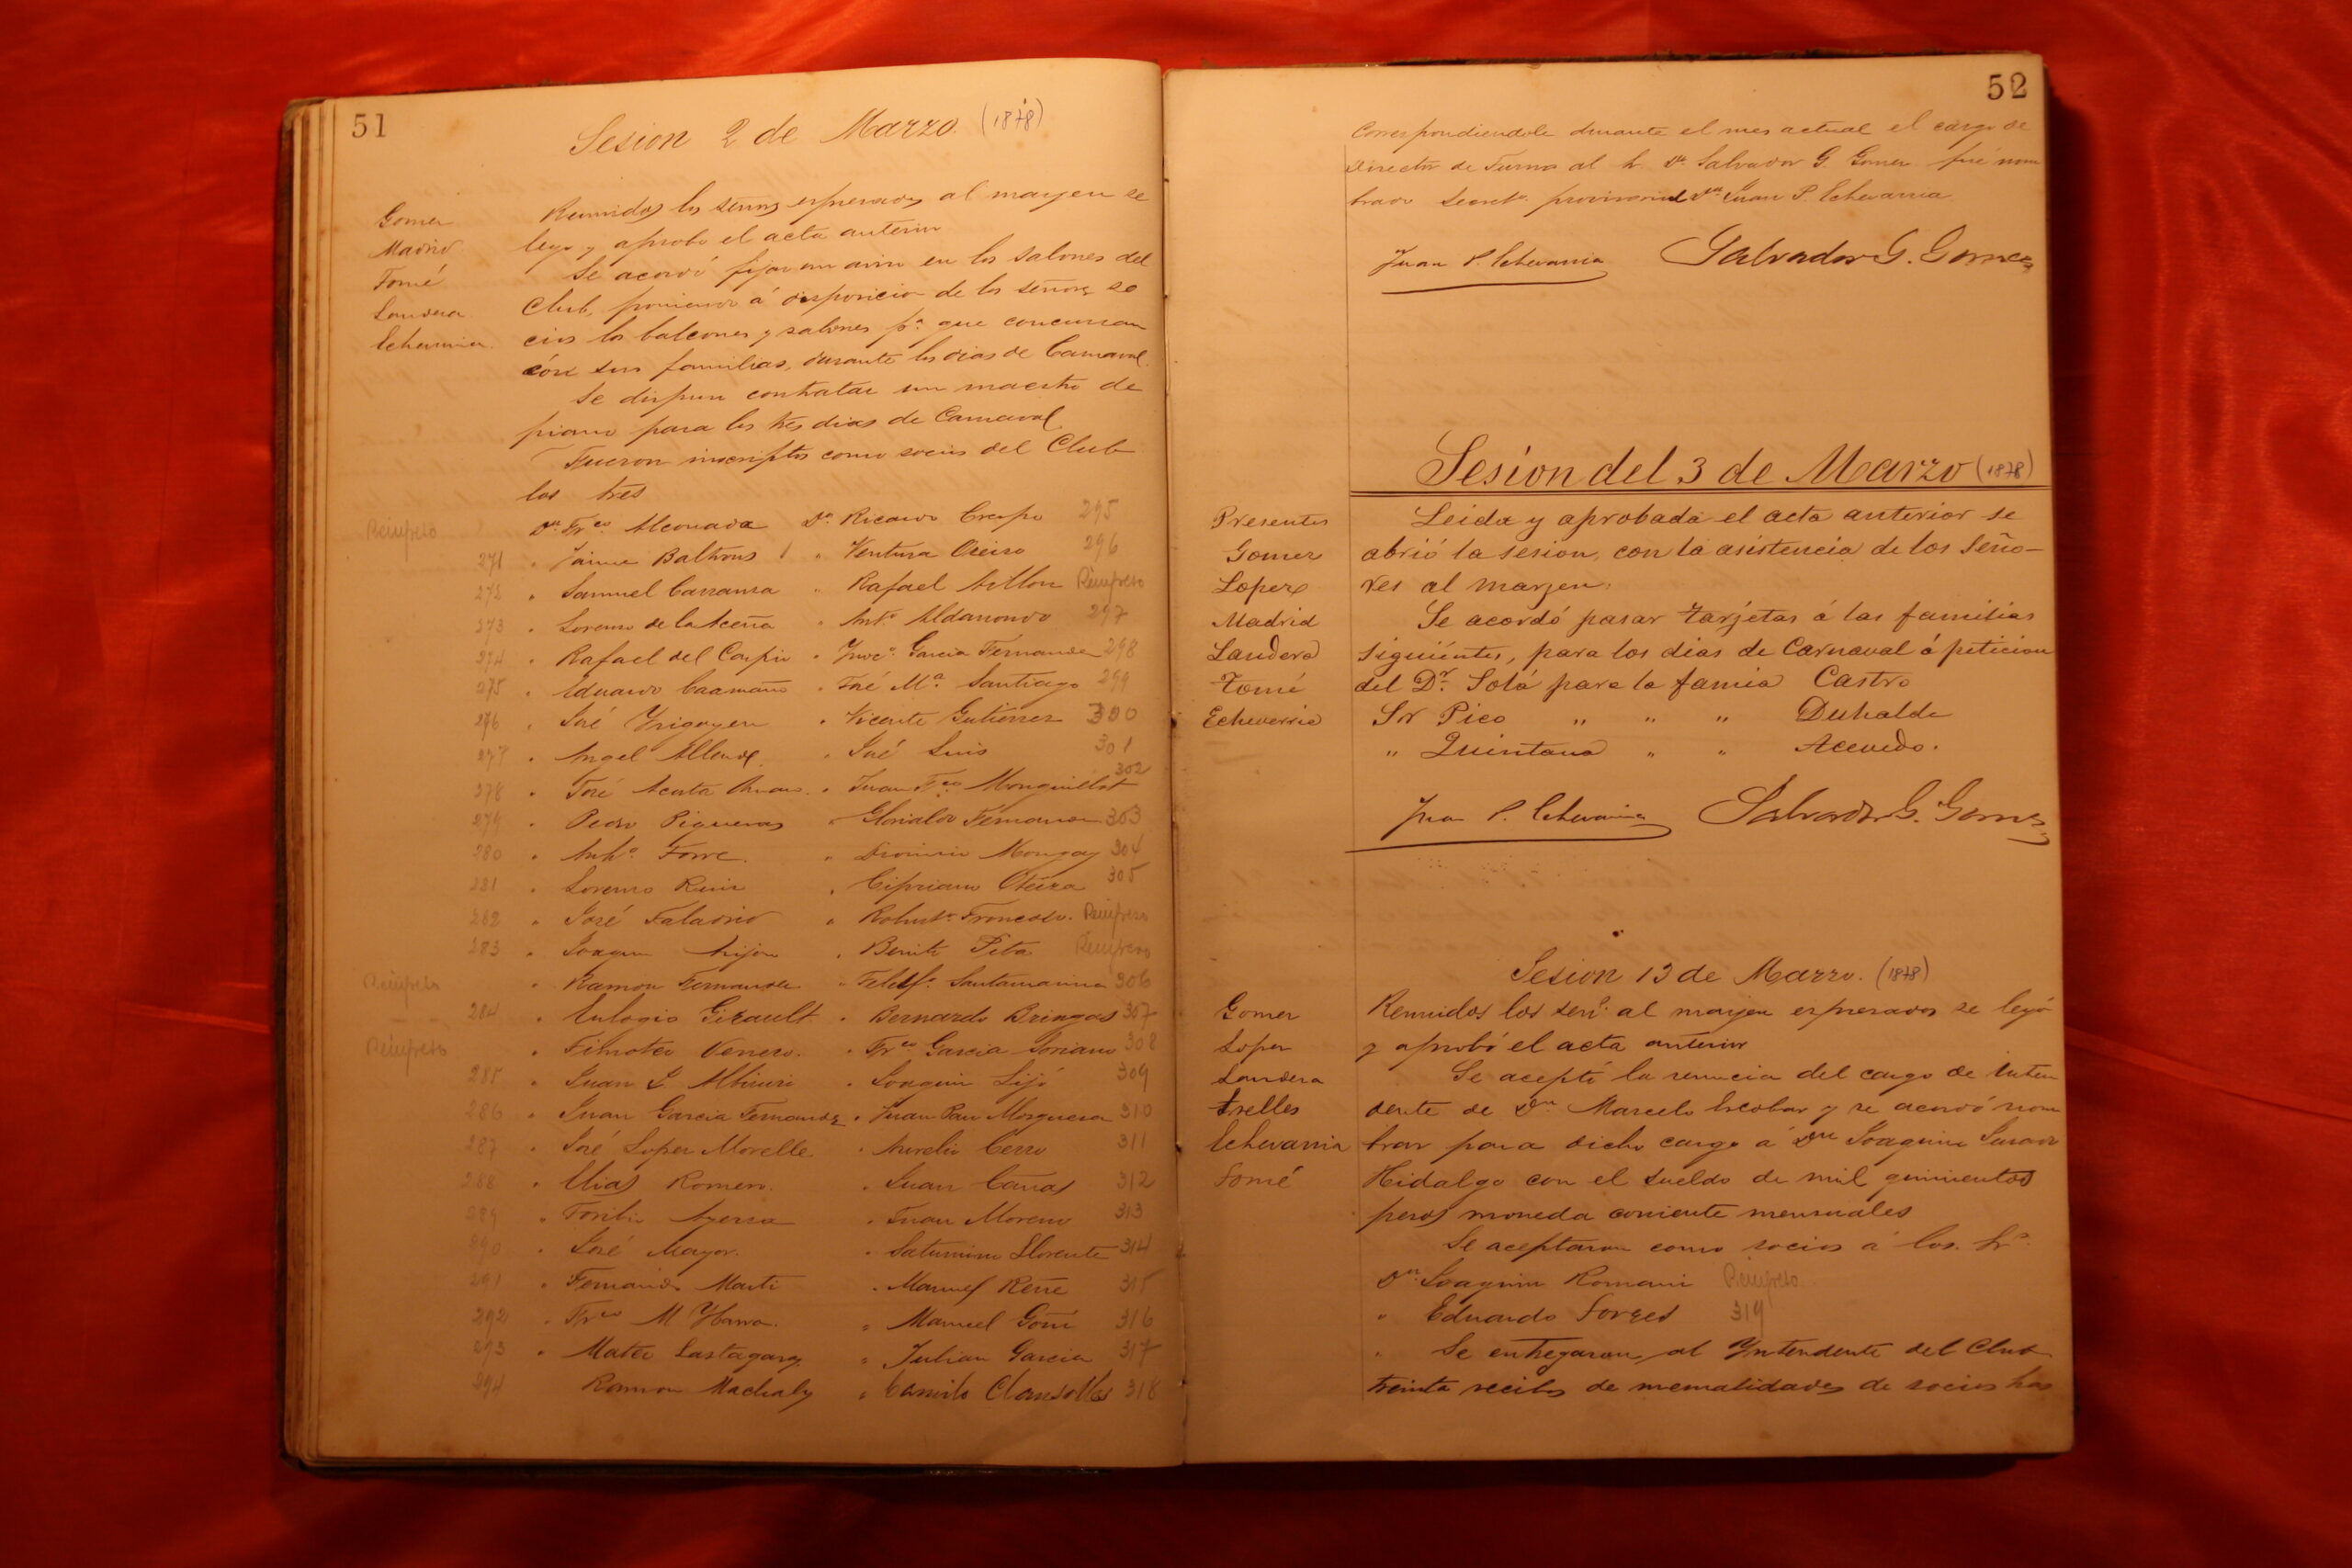 51
Sesion 2 de Marzo. (1878)
Gomez
Madrid
Tomé
Landera
Echevarria
Reunidos los señores espresados al margen se
leyo y aprobo el acta anterior
Se acordó fijar un aviso en los salones del
Club, poniendo á disposicion de los señores so
cios los balcones y salones pª que concurran
con sus familias, durante los dias de Carnaval.
Se dispuso contratar un maestro de
piano para los tres dias de Carnaval
Fueron inscriptos como socios del Club
los tres
Reingreso Dn. Frco Alconada Dn Ricardo Crespo 295
271 " Jaime Baltrons " Ventura Oteiro 296
272 " Samuel Carranza " Rafael Aillon Reingreso
273 " Lorenzo de la Aceña " Anto Aldanondo 297
274 " Rafael del Carpio " Garcia Fernandez 298
275 " Eduardo Caamaño " José Ma Santiago 299
276 " José Yrigoyen " Vicente Gutierrez 300
277 " Angel Allende " José Luis 301
278 " José Acosta " Juan Fco Monguillot 302
279 " Pedro Piqueras " Fernandez 303
280 " Anto Torre. " Dionisio Mongay 304
281 " Lorenzo Ruiz " Cipriano Oteiza 305
282 " José Taladrid " Robusto Troncoso. Reingreso
283 " Joaquin " Benito Pita Reingreso
Reingreso " Ramon Fernandez " Santamarina 306
284 " Eulogio Girault " Bernardo Bringas 307
Reingreso " Timoteo Venero. " Frco Garcia Soriano 308
285 " Juan " Joaquin Lijó 309
286 " Juan Garcia Fernandez " Juan Mosquera 310
287 " José Lopez Morelle " Aurelio Cerro 311
288 " Elias Romero. " Juan Cañas 312
289 " Toribio Ayerza " Juan Moreno 313
290 " José Mayor. " Saturnino Llorente 314
291 " Fernando Marti " Manuel 315
292 " Frco M Ybarra. " Manuel Goñi 316
293 " Mateo " Julian Garcia 317
294 Ramon " Camilo Clausolles 318
52
Correspondiendole durante el mes actual el cargo de
Director de Turno al Sr Dn. Salvador G. Gomez fué nom
brado Secreto provisorio Dn Juan P. Echevarria
Juan P. Echevarria Salvador G. Gomez
Sesion del 3 de Marzo (1878)
Presentes
Gomez
Lopez
Madrid
Landera
Tomé
Echeverria
Leida y aprobada el acta anterior se
abrió la sesion, con la asistencia de los Seño-
res al margen.
Se acordó pasar tarjetas á las familias
siguientes, para los dias de Carnaval á peticion
del Dr. Solá para la famia Castro
Sr Pico " " " Duhalde
" Quintana " " Acevedo.
Juan P. Echevarria Salvador G. Gomez
Sesion 13 de Marzo. (1878)
Gomez
Lopez
Landera
Trelles
Echevarria
Tomé
Reunidos los señs. al margen espresados se leyó
y aprobó el acta anterior
Se aceptó la renuncia del cargo de Inten
dente de Dn Marcelo Escobar y se acordó nom
brar para dicho cargo á Dn Joaquin
Hidalgo con el sueldo de mil quinientos
pesos moneda corriente mensuales
Se aceptaron como socios á los Srs.
Dn. Joaquin Romani Reingreso
" Eduardo Torres 319
" Se entregaron al Yntendente del Club
treinta recibos de mensualidades de socios has